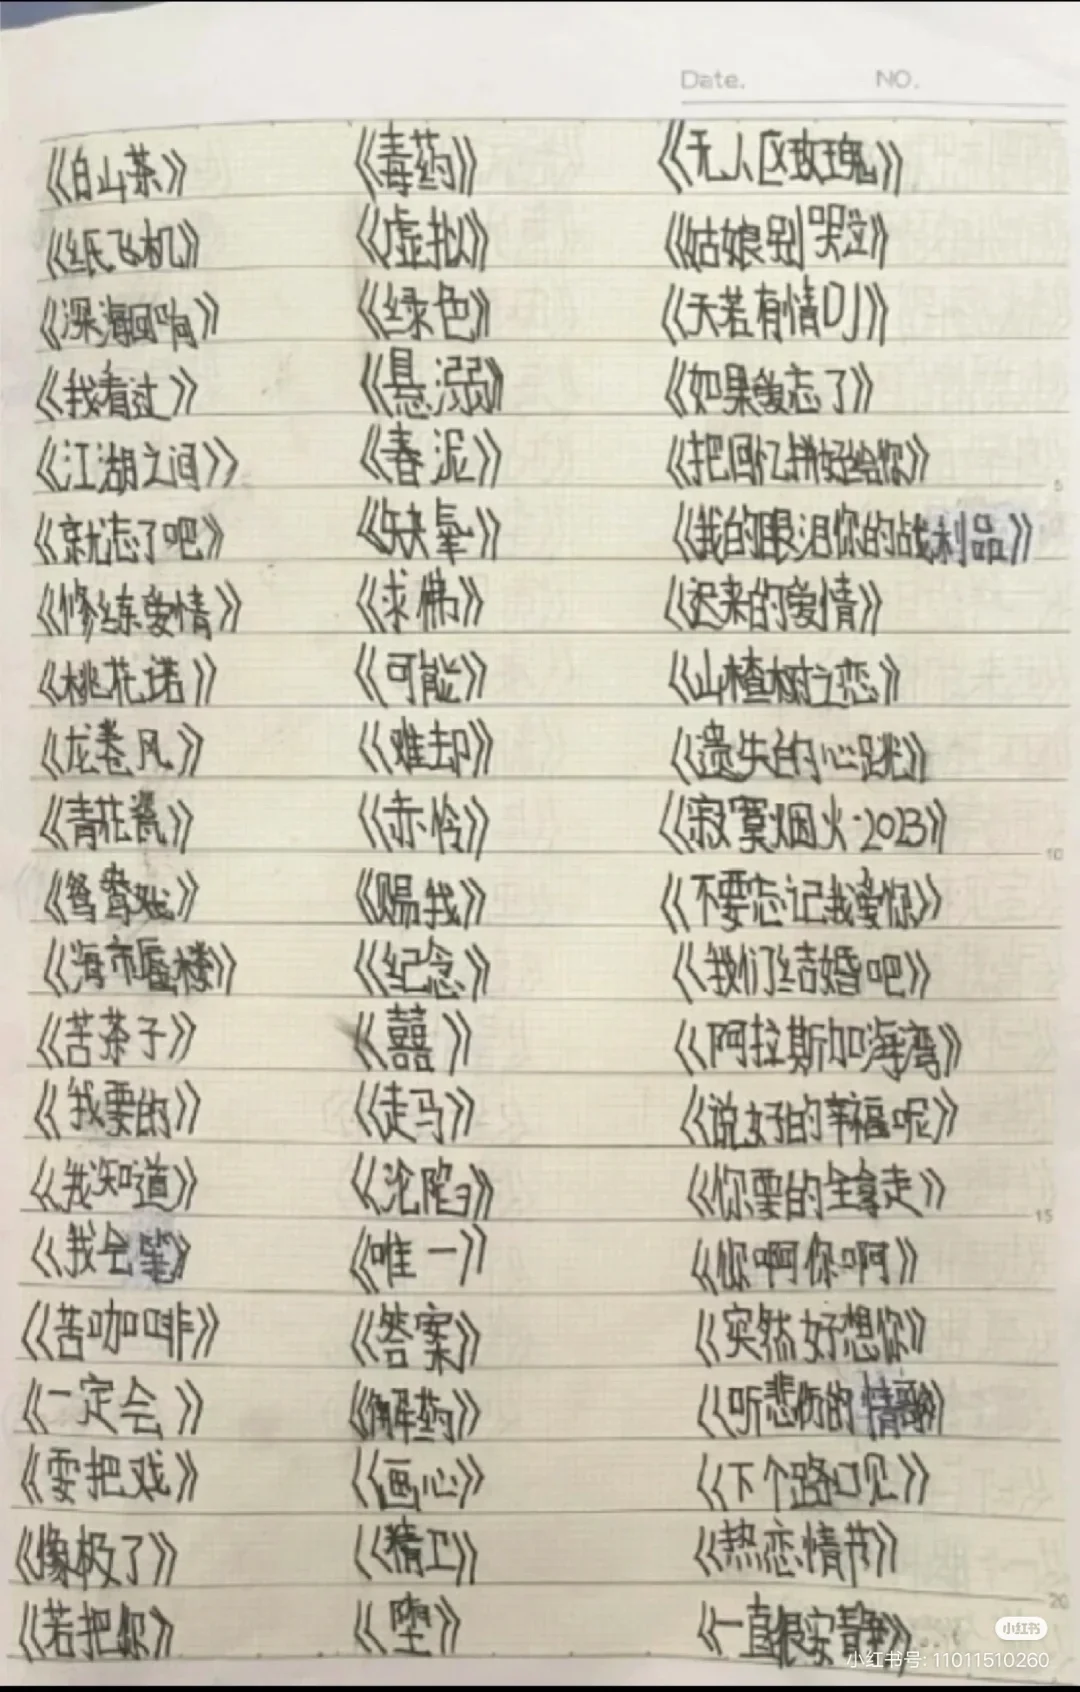 Date. NO.
《白山茶》 《毒药》 《无人区玫瑰》
《纸飞机》 《虚拟》 《姑娘别哭泣》
《深海回响》 《绿色》 《天若有情DJ》
《我看过》 《悬溺》 《如果爱忘了》
《江湖之间》 《春泥》 《把回忆拼好给你》
5
《就忘了吧》 《缺氧》 《我的眼泪你的战利品》
《修练爱情》 《求佛》 《迟来的爱情》
《桃花诺》 《可能》 《山楂树之恋》
《龙卷风》 《难却》 《遗失的心跳》
《青花瓷》 《赤怜》 《寂寞烟火·2023》
10
《鸳鸯戏》 《赐我》 《不要忘记我爱你》
《海市蜃楼》 《纪念》 《我们结婚吧》
《苦茶子》 《囍》 《阿拉斯加海湾》
《我要的》 《走马》 《说好的幸福呢》
《我知道》 《沦陷》 《你要的全拿走》
15
《我会等》 《唯一》 《你啊你啊》
《苦咖啡》 《答案》 《突然好想你》
《一定会》 《解药》 《听悲伤的情歌》
《耍把戏》 《画心》 《下个路口见》
《像极了》 《精卫》 《热恋情节》
20
《若把你》 《堕》 《一直很安静》...
小红书
小红书号: 11011510260